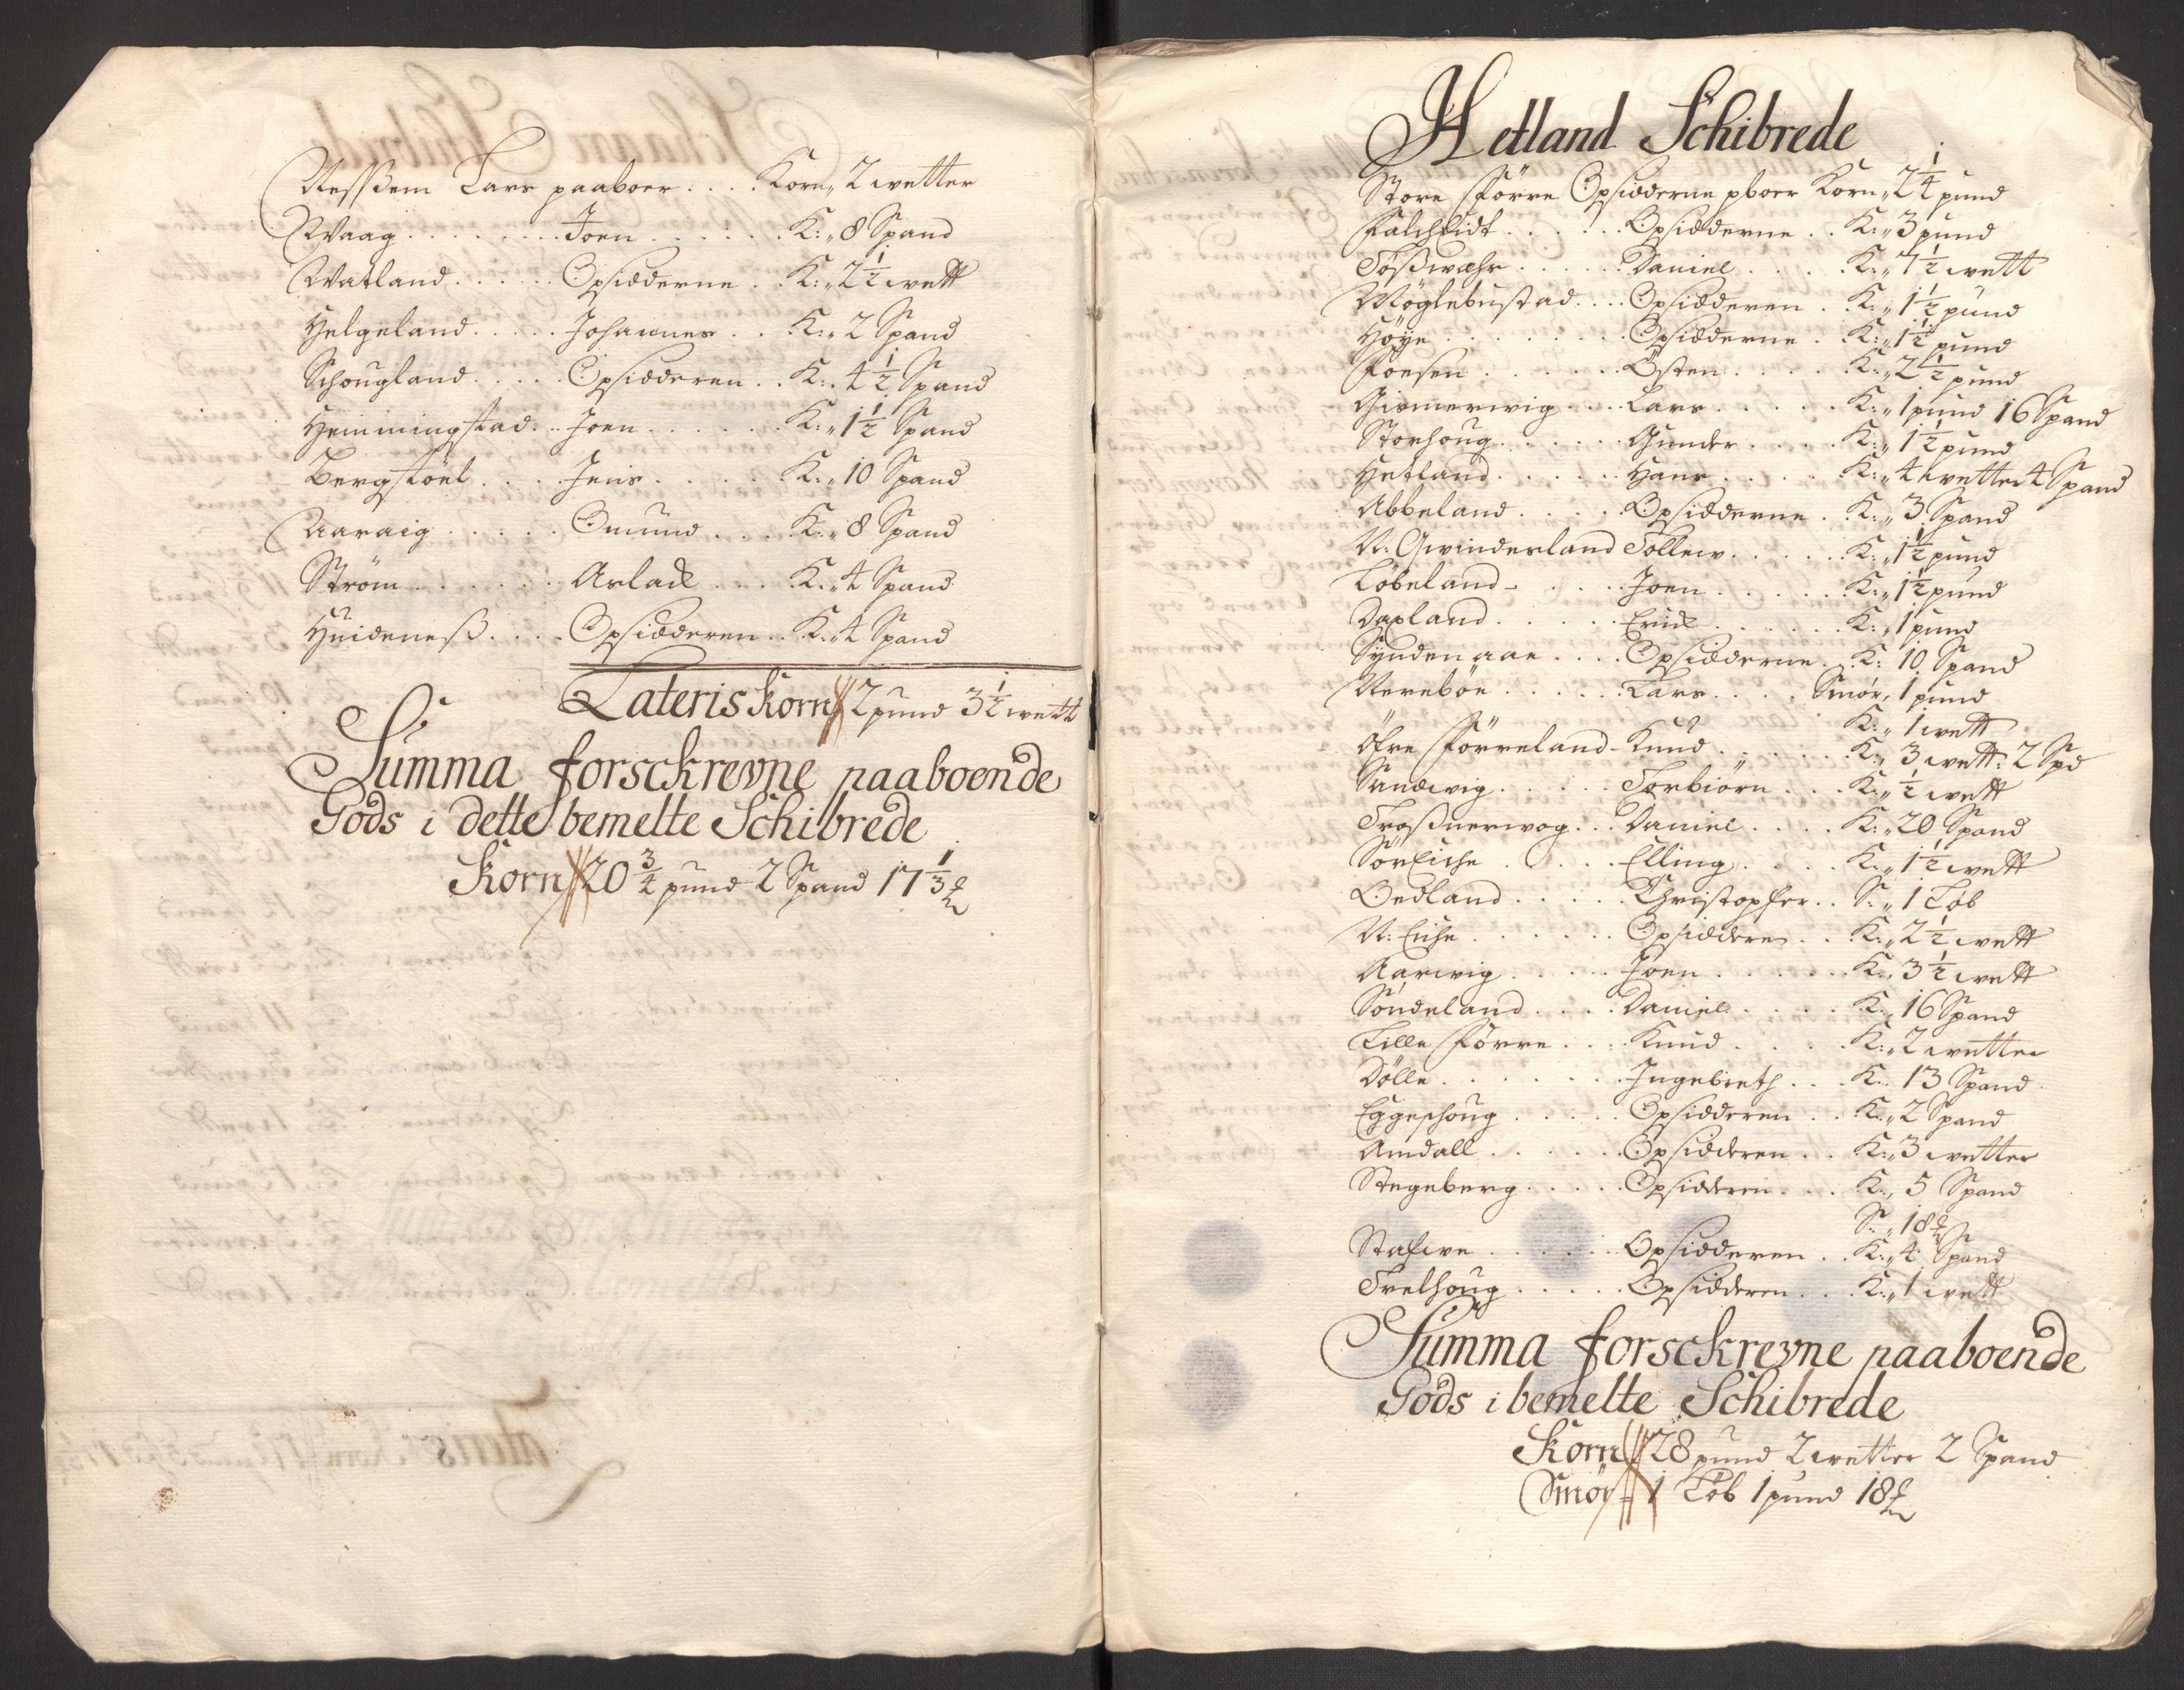 Nessßem Lars paaboer .... Korn „ 2 wetter
Waag ........ Joen ...... K: „ 8 Spand
Watland ...... Opsidderne .. K: „ 2½ wett
Helgeland ..... Johannes ... K: „ 2 Spand
Schougland ..... Opsidderen .. K: „ 4½ Spand
Hemmingstad .. Joen ...... K: „ 1½ Spand
Bergstöel .... Jens ..... K: „ 10 Spand
Aaraig ..... Omund .... K: „ 8 Spand
Ström ...... Aslack ... K: „ 4 Spand
Huideneß .... Opsidderen .. K: „ 4 Spand
Lateris Korn 2 pund 3½ wett
Summa forsckrevne paaboende
Gods i dette bemelte Schibrede
Korn 20¾ pund 2 Spand 17⅓ ℔
Hetland Schibrede
Store Förre Opsidderne pboer Korn „ 2¼ pund
Falcheidt ...... Opsidderne .. K: „ 3 pund
Tößwahr ..... Daniel .... K: „ 7½ wett
Möglebustad ... Opsidderen . K: „ 1½ pund
Höye ........ Opsidderne . K: „ 1½ pund
Foesen ...... Östen .... K: „ 2½ pund
Gismerwig ... Lars ..... K: „ 1 pund 16 Spand
Storhoug ...... Gunder .... K: „ 1½ pund
Hetland ...... Hans .... K: „ 4 wetter 4 Spand
Abbeland ..... Opsidderne . K: „ 3 Spand
N: Qwindesland Tollew ..... K: „ 1½ pund
Löbeland - ... Joen ...... K: „ 1½ pund
Dapland ..... Erick ...... K: „ 1 pund
Synden aae .... Opsidderne . K: 10 Spand
Nereböe ...... Lars .... Smör, 1 pund
K: „ 1 wett
Öfre Förreland - Knud ..... K: „ 3 wett: 2 Spd
Sandwig ..... Torbiörn ... K: „ ½ wett
Troßnerwog ... Daniel .... K: „ 20 Spand
Sör Eiche ..... Elling .... K: „ 1½ wett
Oedland ..... Christopher .. S: „ 1 Löb
N: Eiche ...... Opsiddere .. K: „ 2½ wett
Aarwig ..... Joen ...... K: „ 3½ wett
Söndeland .... Daniel .... K: „ 16 Spand
Lille Förre ... Knud .... K: „ 2 wetter
Dölle ....... Ingebreth ... K: 13 Spand
Eggeshoug ..... Opsidderen .. K: „ 2 Spand
Amdall ...... Opsidderen .. K: „ 3 wetter
Stegeberg ..... Opsidderen ... K: „ 5 Spand
S: „ 18 ℔
Stalwe ...... Opsidderen .. K: „ 4 Spand
Trelhoug ..... Opsidderen ... K: „ 1 wett
Summa forsckrevne paaboende
Gods i bemelte Schibrede
Korn 28 pund 2 wetter 2 Spand
Smör 1 Löb 1 pund 18 ℔